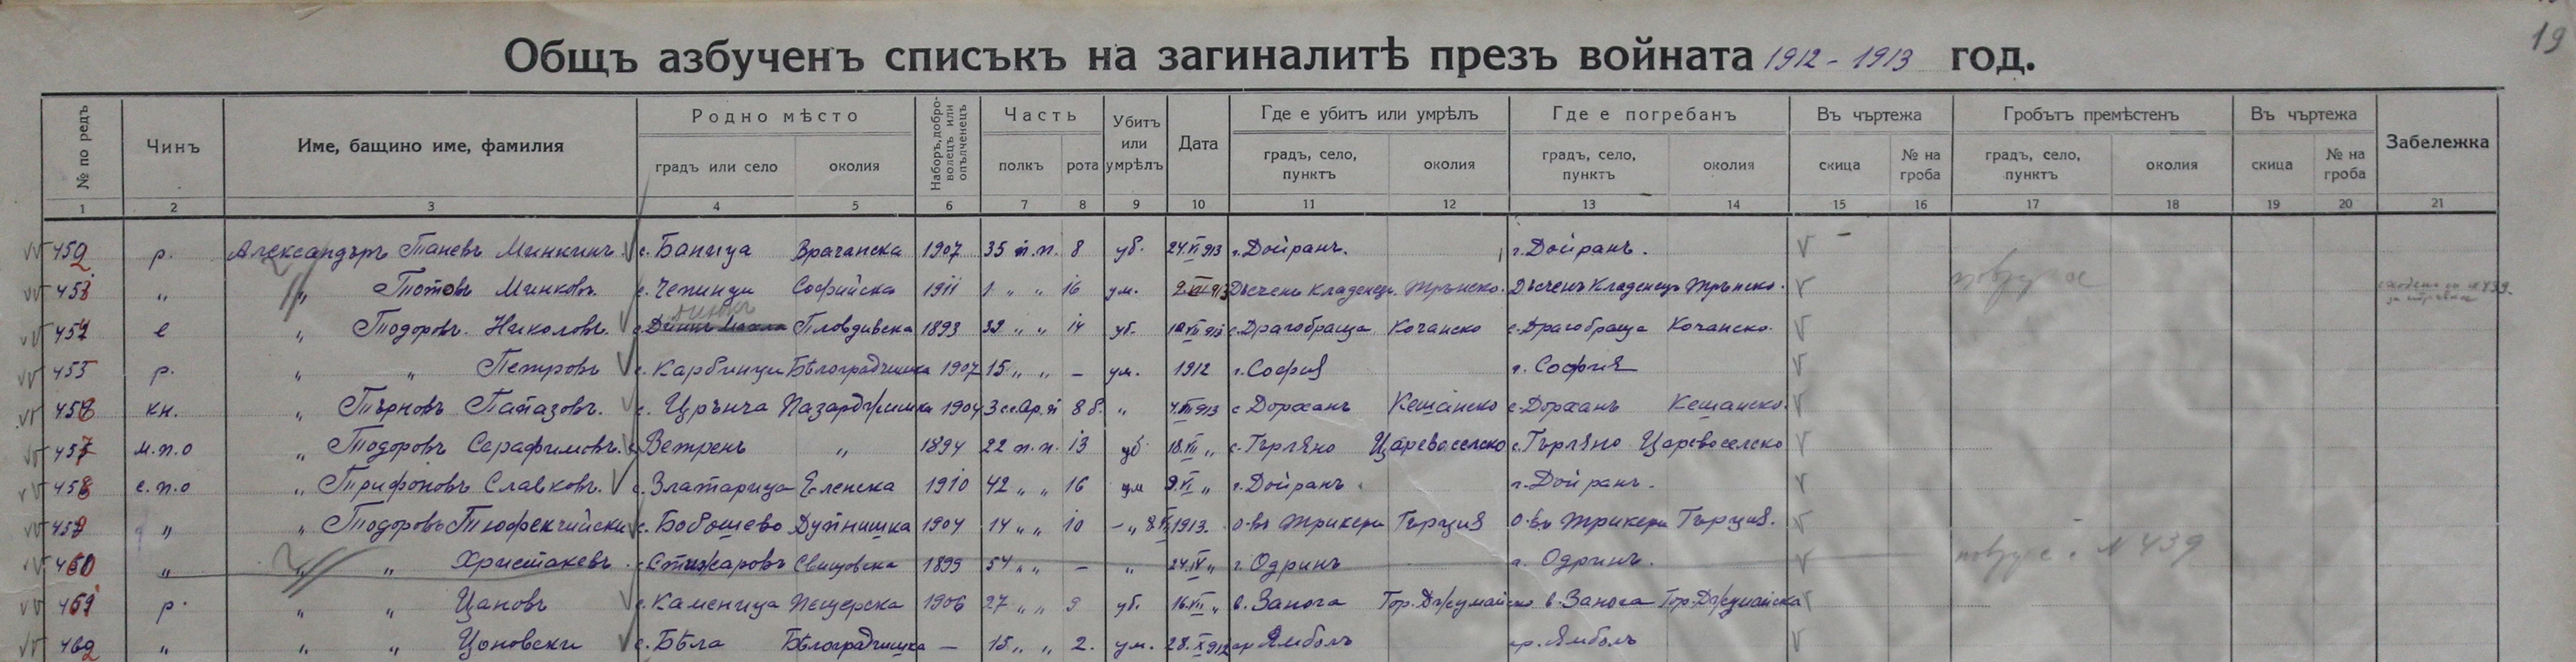 19
Общъ азбученъ списъкъ на загиналитѣ презъ войната 1912 - 1913 год.
№ по редъ Чинъ Име, бащино име, фамилия Родно мѣсто градъ или село околия Наборъ, добро-волецъ или опълченецъ Часть полкъ рота Убитъ или умрѣлъ Дата Где е убитъ или умрѣлъ градъ, село, пунктъ околия Где е погребанъ градъ, село, пунктъ околия Въ чъртежа скица № на гроба Гробътъ премѣстенъ градъ, село, пунктъ околия Въ чъртежа скица № на гроба Забележка
1 2 3 4 5 6 7 8 9 10 11 12 13 14 15 16 17 18 19 20 21
452 р. Александъръ Таневъ Минкинъ с. Баница Врачанска 1907 35 п.п. 8 уб. 24.VI 913 г. Дойранъ. г. Дойранъ.
453 „ „ Тотовъ Минковъ с. Чепинци Софийска 1911 1 „ „ 16 ум. Дъсченъ Кладенецъ Трънско. Дъсченъ Кладенецъ Трънско.
454 е „ Тодоровъ Николовъ Пловдивска 1893 32 „ „ 14 уб. с. Драгобраща Кочанско с. Драгобраща Кочанско.
455 р. „ „ Петровъ с. Карбинци Бѣлоградчишка 1907 15 „ „ – ум. 1912 г. София г. София
456 кн. „ Търновъ Папазовъ. с. Църънча Пазарджишка 1904 3 с.с.ар.п 8 б. „ с Дорханъ Кешанско с. Дорханъ Кешанско.
457 м.п.о „ Тодоровъ Серафимовъ. с. Ветренъ „ 1894 22 п.п. 13 уб 18.VII „ с. Търляно Царевоселско с. Търляно Царевоселско
458 с.п.о „ Трифоновъ Славковъ. с. Златарица Еленска 1910 42 „ „ 16 ум 9.VI „ г. Дойранъ. г. Дойранъ.
459 „ „ Тодоровъ Тюфекчийски с. Бобошево Дупнишка 1904 14 „ „ 10 – „ 1913. о-въ Трикери Гърция о-въ Трикери Гърция.
460 „ „ „ Христакевъ Свищовска 1899 54 „ „ – „ 24.IV „ г. Одринъ г. Одринъ. N 439
461 р. „ „ Цановъ с. Каменица Пещерска 1906 27 „ „ 9 уб. 16.VII „ в. Занога Гор. Джумайско в. Занога Гор. Джумайска
462 „ „ „ Цоновски с. Бѣла Бѣлоградчишка – 15 „ „ 2. ум. 28.X 912 гр Ямболъ гр. Ямболъ